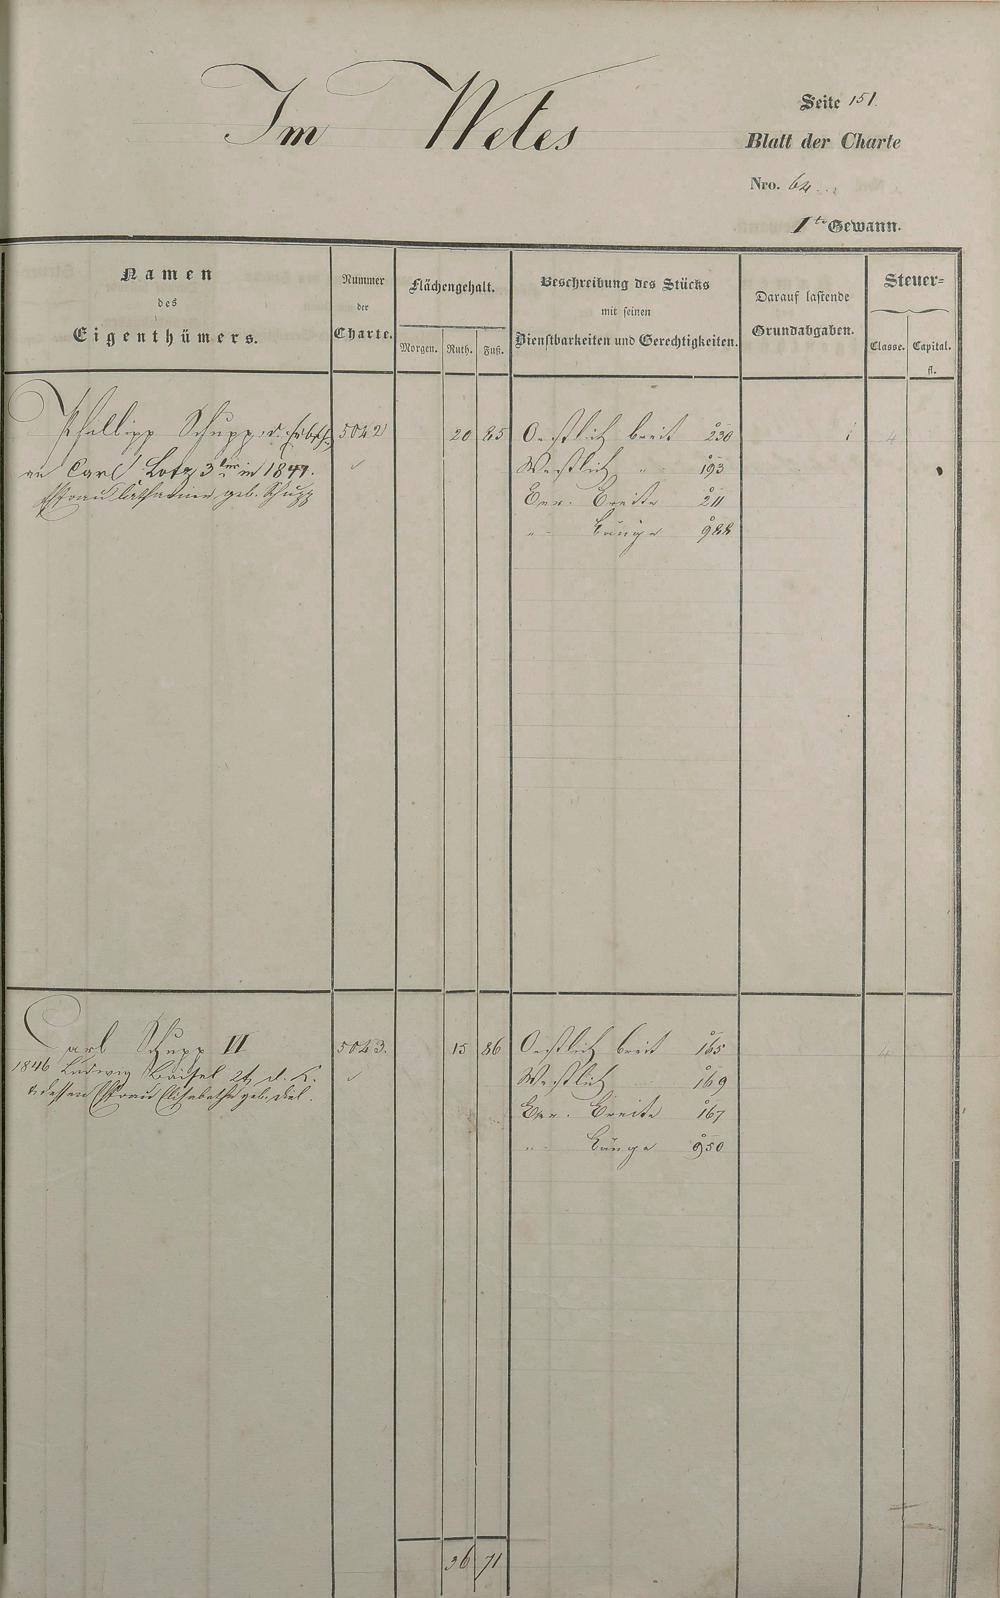 Im Wetes
Seite 151.
Blatt der Charte
Nro. 64
1te Gewann.
Namen
des
Eigenthümers.
Nummer
der
Charte.
Flächengehalt.
Morgen. Ruth. Fuß.
Beschreibung des Stücks
mit seinen
Dienstbarkeiten und Gerechtigkeiten.
Darauf lastende
Grundabgaben.
Steuer=
Classe. Capital.
fl.
Phillipp Schupp, d. 5042 20 85 Oestlich breit 230 1 4
an Carl Lotz 3ter in 1847. Westlich „ 193
Frau Catharine, geb. Schupp Gen. Breite 211
„ Länge 988
Carl Schupp II 5043. 15 86 Oestlich breit 165 4
1846 Ludwig 2t d. K. Westlich 169
& dessen Frau Elisabethe geb. Diel. Gen. Breite 167
„ Länge 950
36 71